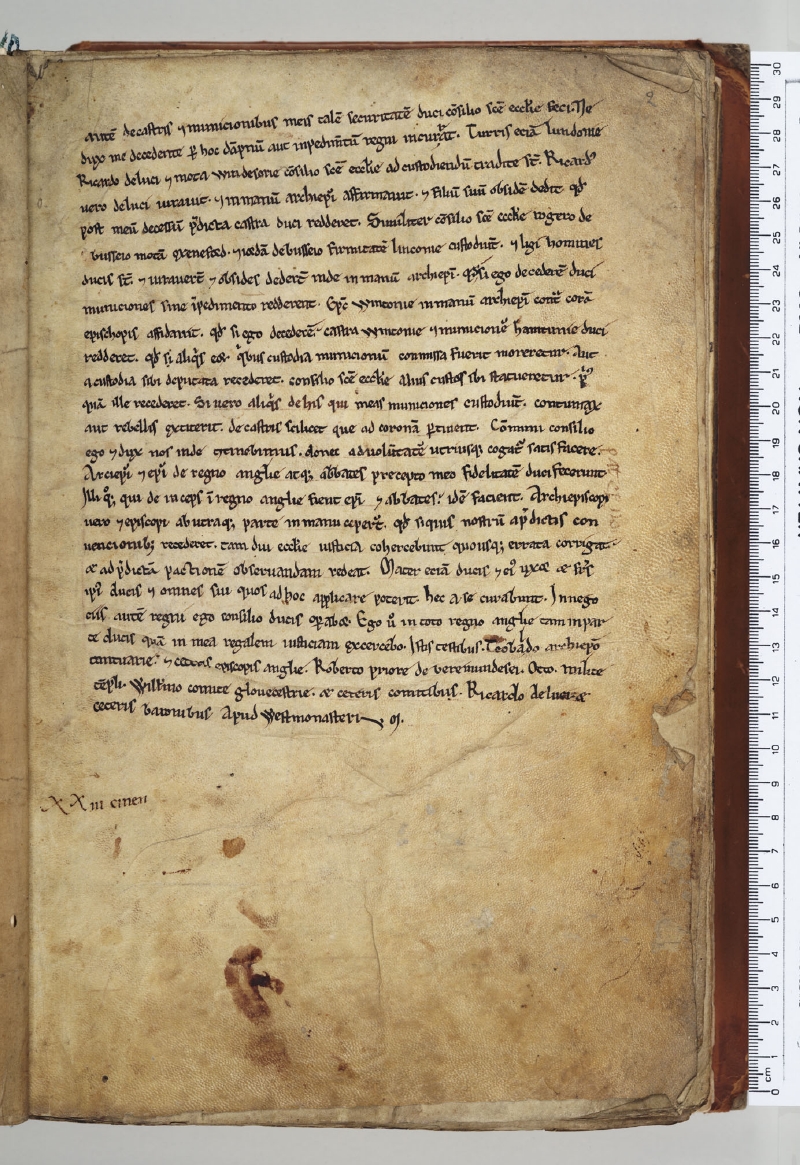 autē de castris ⁊ municionibus meis talē securitatē duci cōsilio scē eccl̄ie feci. Ne
dux me decedente ꝑ hoc dāpnū aut inpedimtū regni incurrat. Turris eciā lundonie
Ricardo de luci ⁊ mota Windesorie cōsilio scē eccl̄ie ad custodiendū tradite st̄. Ricard᷒
uero de luci iurauit. ⁊ in manū archiep̄i affirmauit. ⁊ filiū suū obsidē dedit qd̄
post meū decessū p̄dicta castra duci redderet. Similiter cōsilio scē eccl̄ie rogero de
busseio motā oxeneford. ⁊ iordā de busseio firmitatē linconie custodiūt. ⁊ ligi homines
ducis st̄. ⁊ iurauerūt ⁊ obsides dederūt inde in manū archiep̄i. Qd̄ si ego decederē duci
municiones sine īpedimento redderent. Ep̄c Wintonie in manū archiep̄i cont̄ corā
epischopis affidauit. qd̄ si ego decederē castra Wintonie ⁊ municionē hamtunie duci
redderet. qd̄ si aliq̄s eoꝝ q̄bus custodia municionū commissa fuerit moreretur. Aut
a custodia sibi deputata recederet. consilio scē eccl̄ie alius custos ibi statueretur. p᷒
quā ille recederet. Si uero aliq̄s de his qui meas municiones custodiūt. contumax
aut rebellis extiterit. de castris scilicet que ad coronā ꝑtinent. Cōmuni consilio
ego ⁊ dux nos inde continebimus. donec ad uolūtatē utriusq; cogat᷒ satisfacere.
Arciep̄i ⁊ ep̄i de regno anglie atq; abbates precepto meo fidelitatē duci fecerunt
Illi q̊; qui de inceps ī regno anglie fient ep̄i ⁊ abbates: idē facient. Archiepiscopi
uero ⁊ episcopi ab utraq; parte in manu ceperūt. qd̄ si quis nostrū a p̄dictis con
uencionib; recederet. tam diu eccl̄ie iusticia cohercebunt quousq; errata corrigat.
⁊ ad p̄dictā pactionē obseruandam redeat. Mater eciā ducis ⁊ ei᷒ uxor ⁊ frs̄
ip̄i᷒ ducis ⁊ omnes sui quos ad hoc applicare poterit. hec a se curabunt. In nego
ciis autē regni ego consilio ducis operabor. Ego ū in toto regno anglie tam in par
te ducis quā in mea regalem iusticiam excercebo. Istis testibus. Teobaldo archiep̄o
cantuarie. ⁊ ceteris episcopis anglie. Roberto priore de beremundesei. Otto. milite
tēpli. Willmo comite glouecestrie. ⁊ ceteris comitibus. Ricardo de luci ⁊
ceteris baronibus Apud Westmonasteri